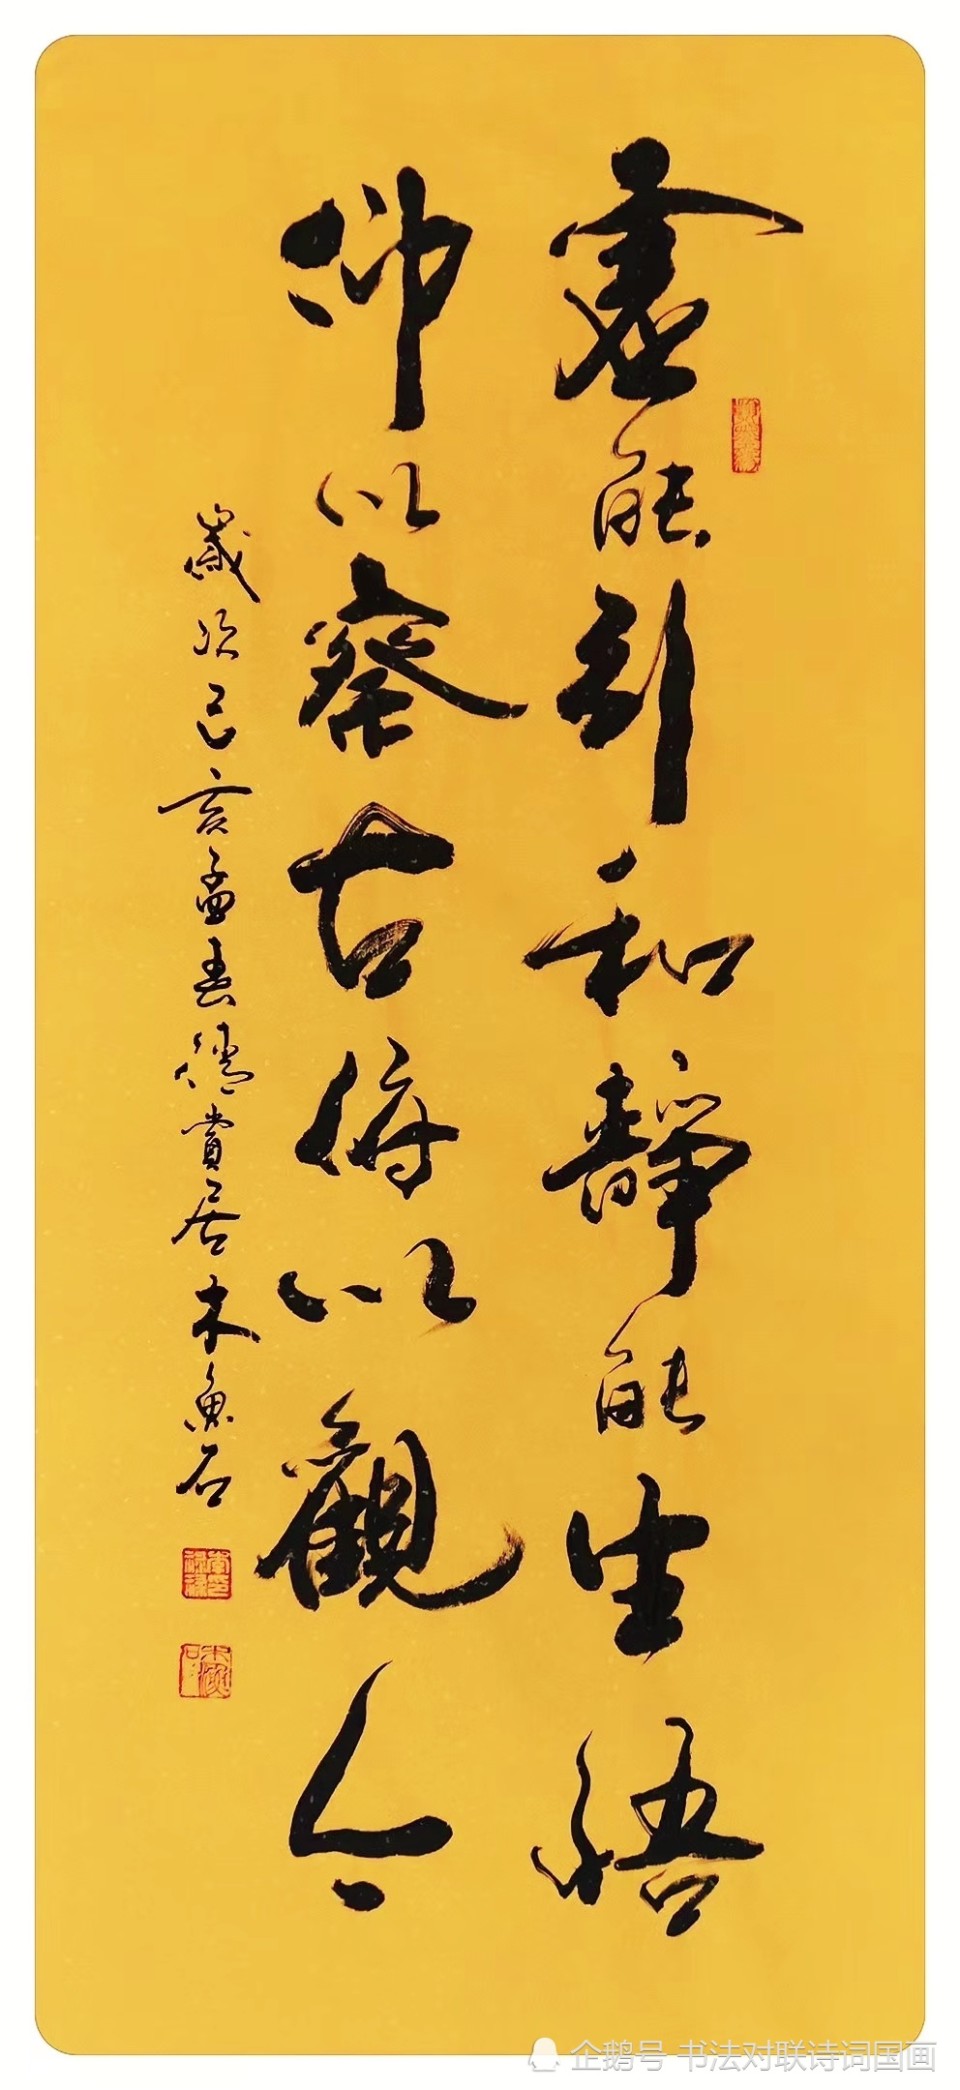 虛能引和靜能生悟
仰以察古俯以觀今
歲次己亥孟春儒賞居木魚石
企鹅号 书法对联诗词国画